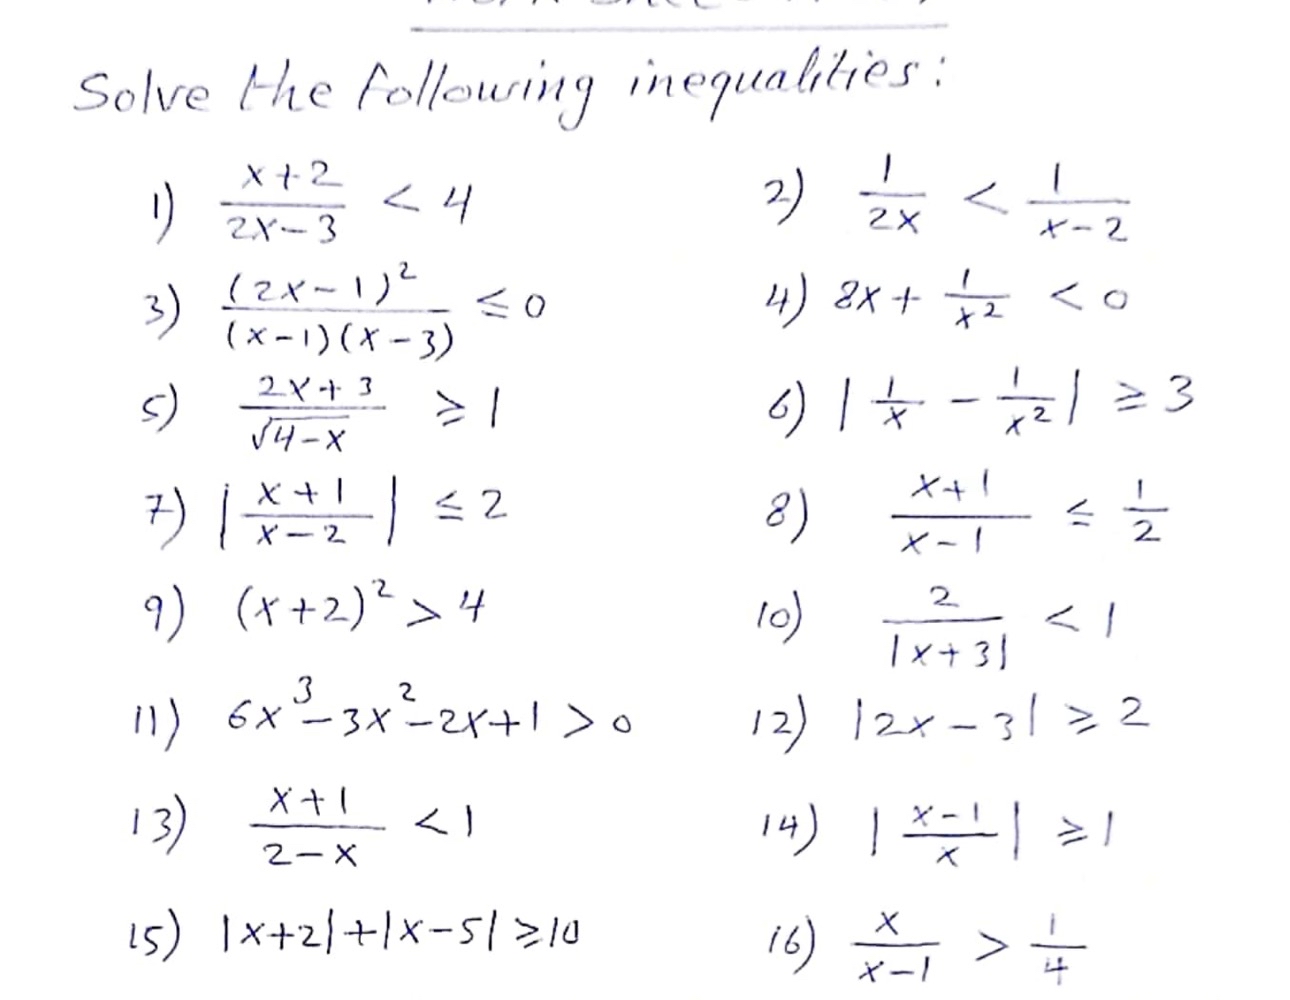 Solve the following inequalities:
1) \frac{x+2}{2x-3} < 4
2) \frac{1}{2x} < \frac{1}{x-2}
3) \frac{(2x-1)^2}{(x-1)(x-3)} ≤ 0
4) 8x + \frac{1}{x^2} < 0
5) \frac{2x+3}{\sqrt{4-x}} ≥ 1
6) |\frac{1}{x} - \frac{1}{x^2}| ≥ 3
7) |\frac{x+1}{x-2}| ≤ 2
8) \frac{x+1}{x-1} ≤ \frac{1}{2}
9) (x+2)^2 > 4
10) \frac{2}{|x+3|} < 1
11) 6x^3-3x^2-2x+1 > 0
12) |2x-3| ≥ 2
13) \frac{x+1}{2-x} < 1
14) |\frac{x-1}{x}| ≥ 1
15) |x+2|+|x-5| ≥ 10
16) \frac{x}{x-1} > \frac{1}{4}